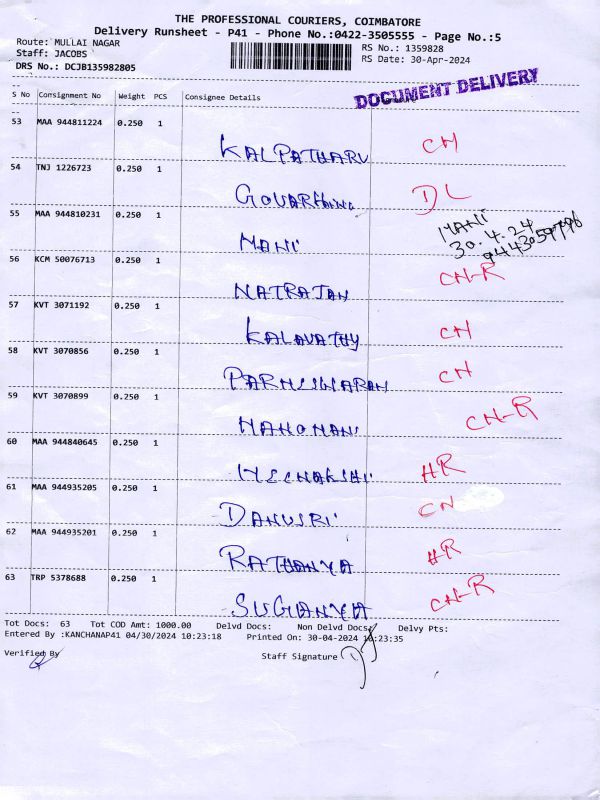 THE PROFESSIONAL COURIERS, COIMBATORE
Delivery Runsheet - P41 - Phone No.:0422-3505555 - Page No.:5
Route: MULLAI NAGAR RS No.: 1359828
Staff: JACOBS RS Date: 30-Apr-2024
DRS No.: DCJB135982805
DOCUMENT DELIVERY
S No Consignment No Weight PCS Consignee Details
53 MAA 944811224 0.250 1
KALPATHARU CH
54 TNJ 1226723 0.250 1
DL
55 MAA 944810231 0.250 1
MANI MANI
30.4.24
56 KCM 50076713 0.250 1
NATRAJAN CN-R
57 KVT 3071192 0.250 1
KALAVATHY CH
58 KVT 3070856 0.250 1
PARMESWARAN CH
59 KVT 3070899 0.250 1
MANOMANI CN-R
60 MAA 944840645 0.250 1
MEENAKSHI HR
61 MAA 944935205 0.250 1
DANUSRI CN
62 MAA 944935201 0.250 1
RATHANYA HR
63 TRP 5378688 0.250 1
SUGANYA CN-R
Tot Docs: 63 Tot COD Amt: 1000.00 Delvd Docs: Non Delvd Docs: Delvy Pts:
Entered By :KANCHANAP41 04/30/2024 10:23:18 Printed On: 30-04-2024 10:23:35
Verified By Staff Signature